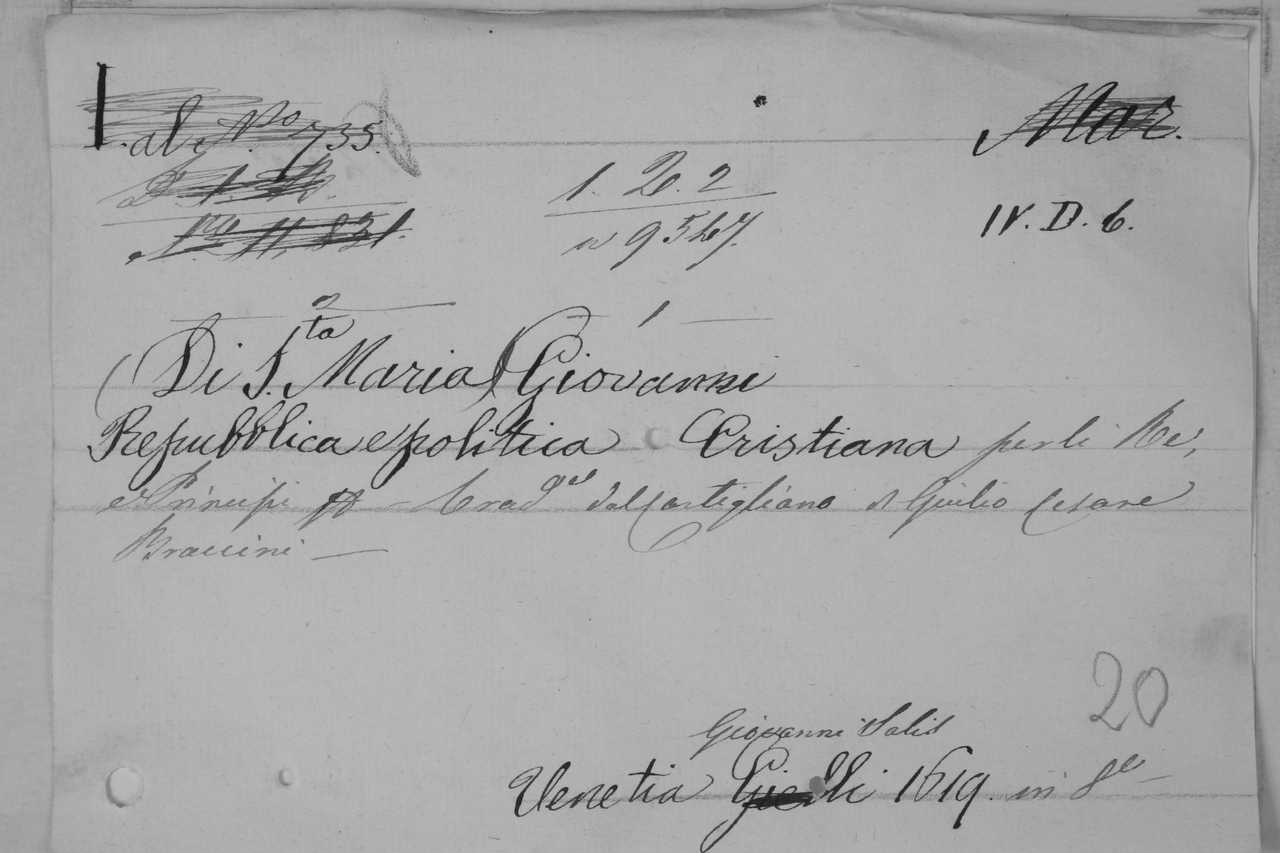 al N.º 735. Mar.
1. D. 2
IV. D. 6.
n 9547.
2 1
(Di S.ta Maria) Giovanni
Repubblica e politica Cristiana per li Re,
e Principi Trad.ne dal Castigliano di Giulio Cesare
Braccini —
20
Giovanni Salis
Venetia 1619. in 8º